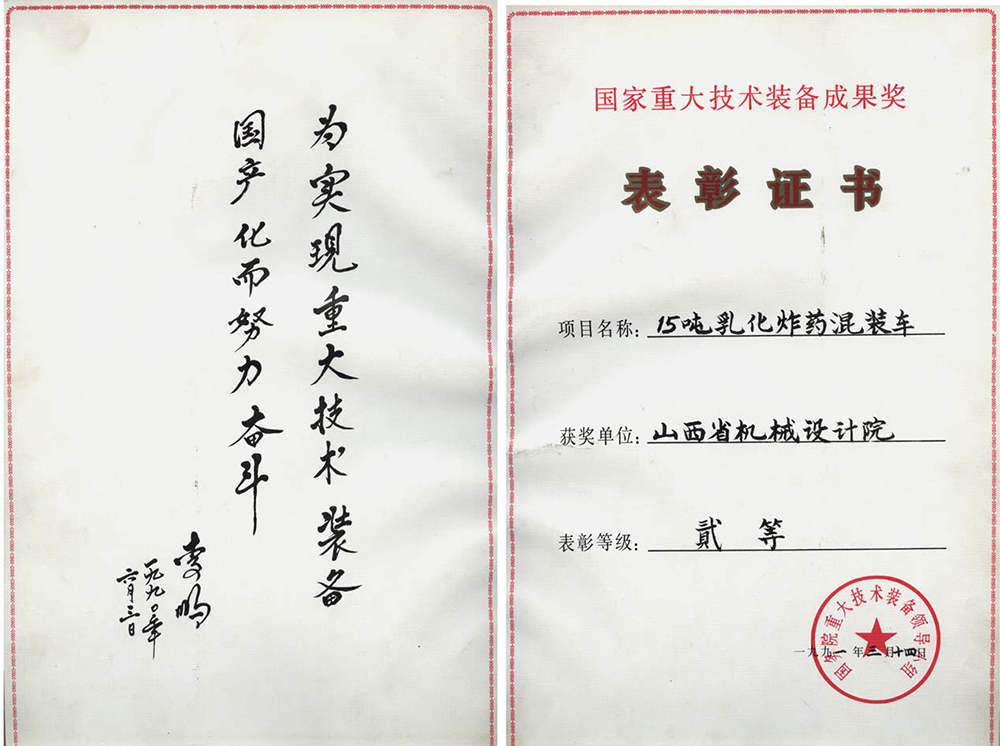 为实现重大技术装备
国产化而努力奋斗
李鹏
一九九〇年
六月三日
国家重大技术装备成果奖
表彰证书
项目名称：15吨乳化炸药混装车
获奖单位：山西省机械设计院
表彰等级：贰等
国务院重大技术装备领导小组
一九九一年三月十四日